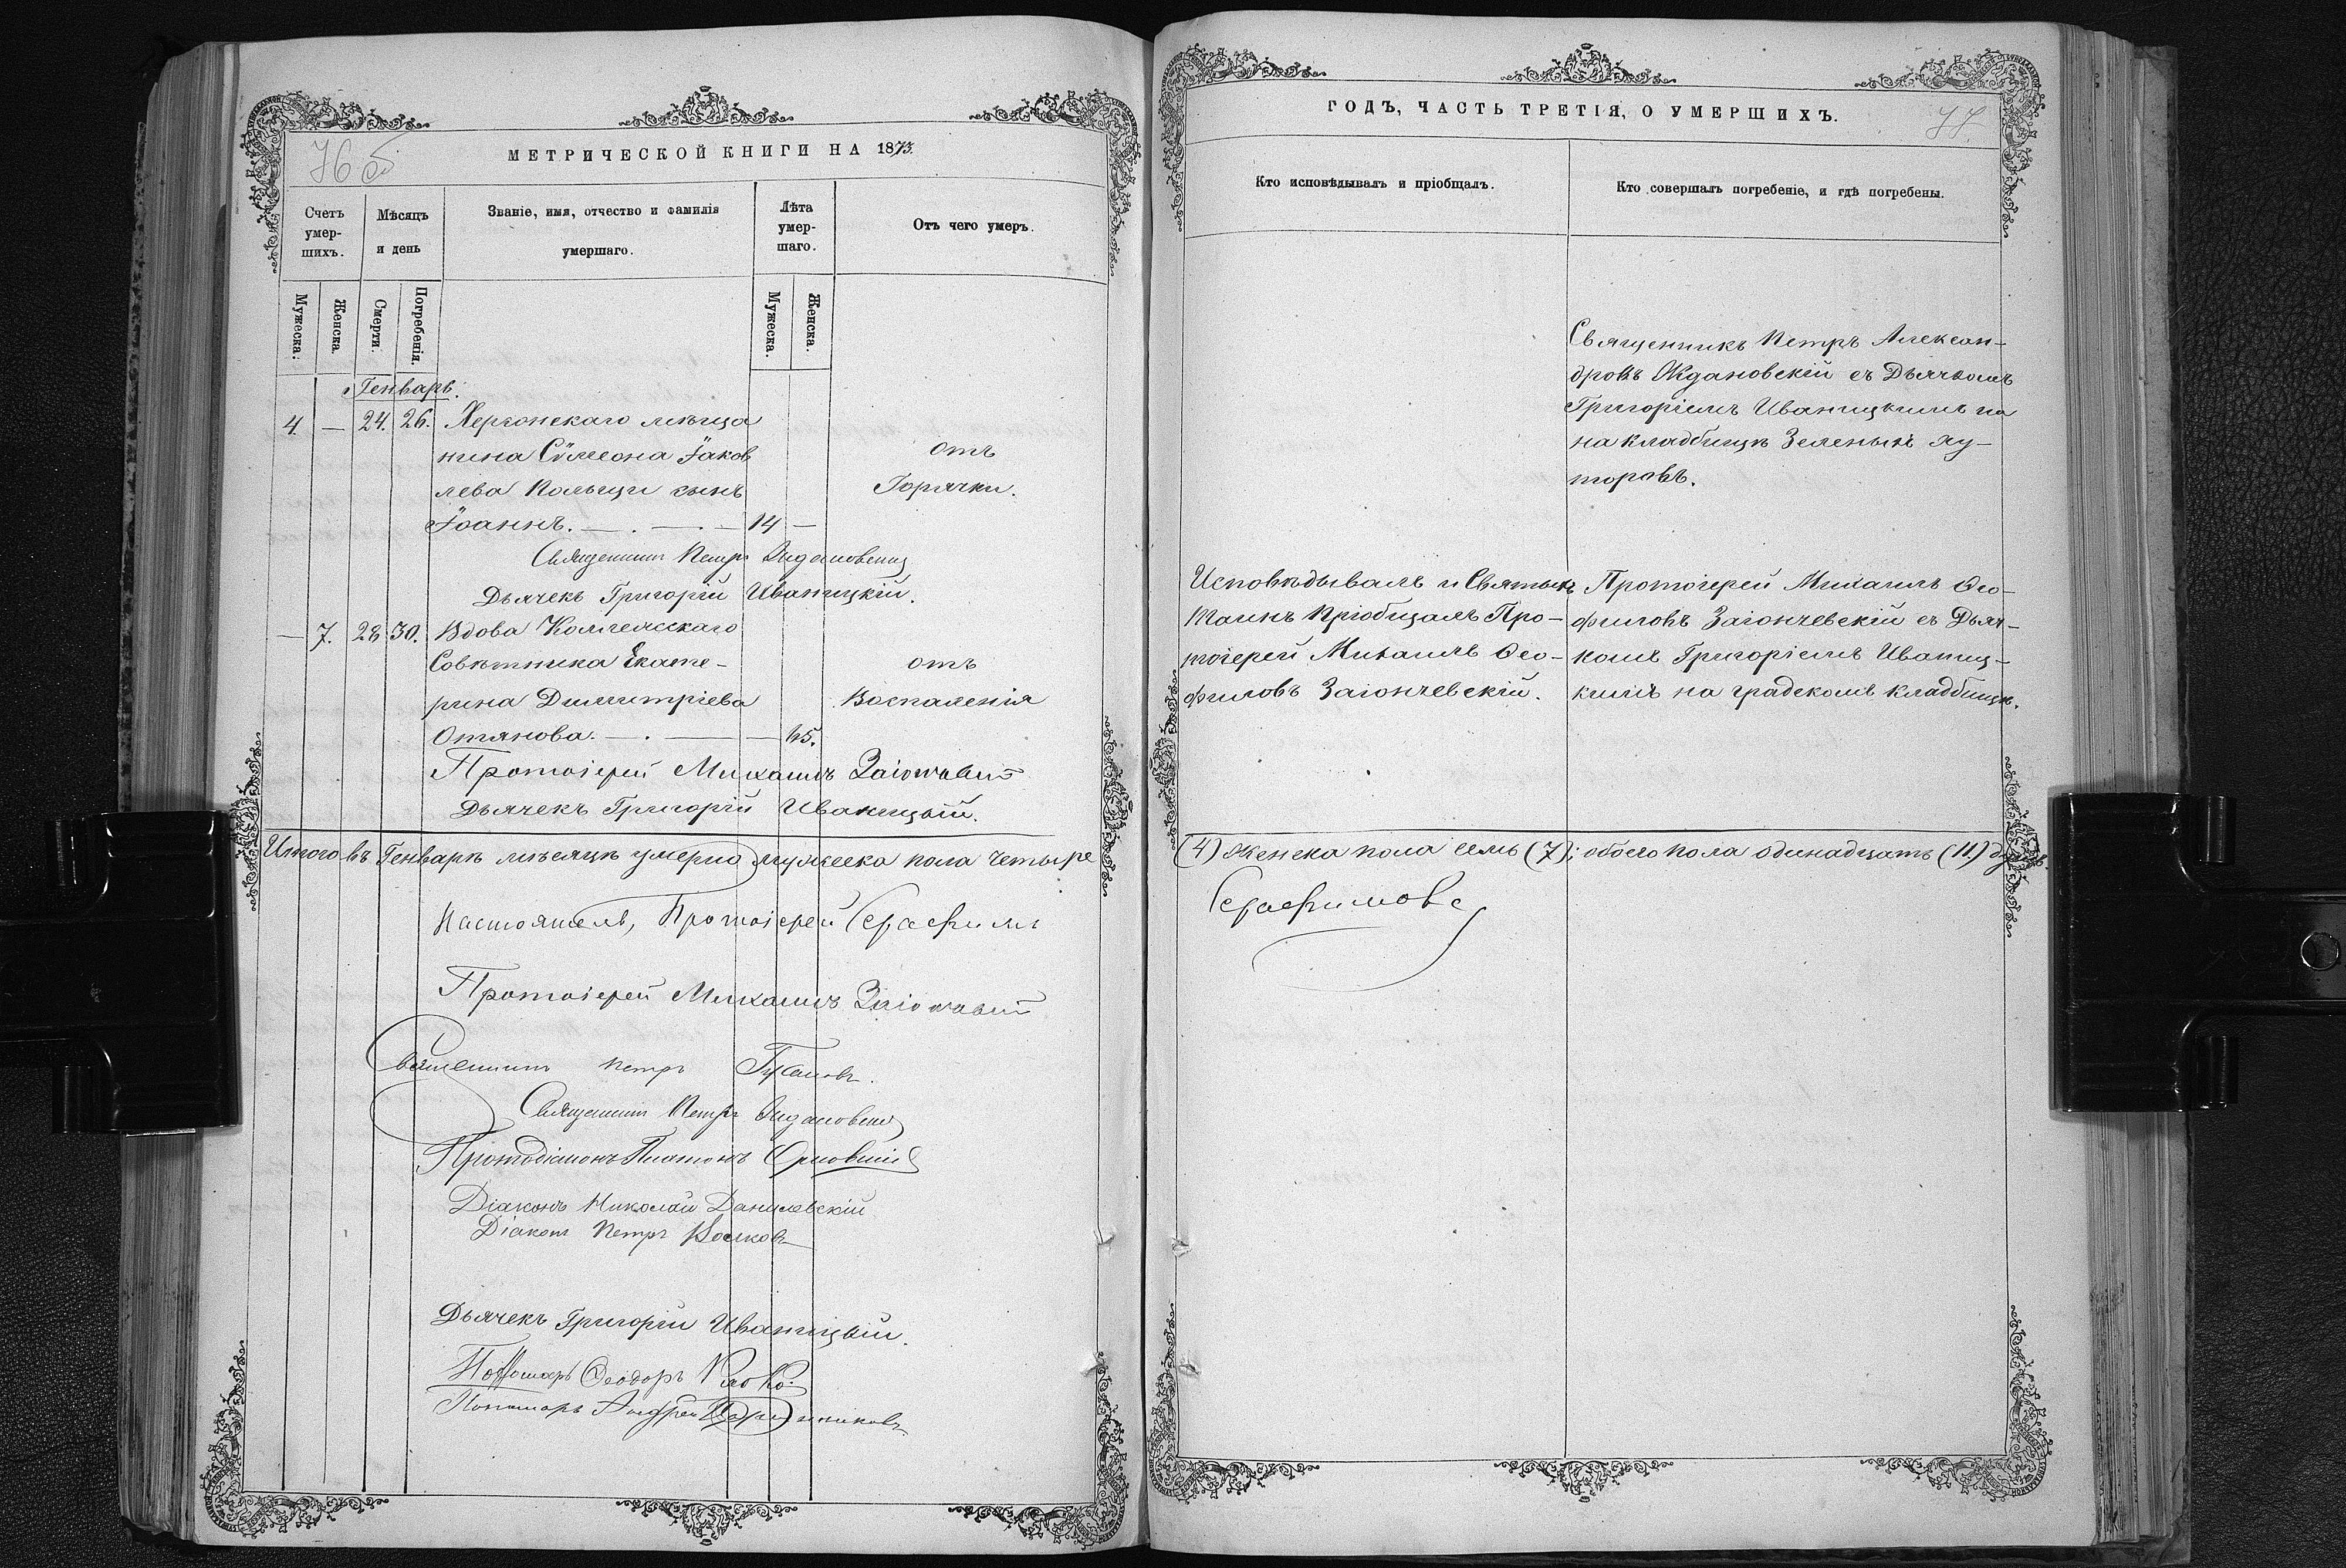 76 об
МЕТРИЧЕСКОЙ КНИГИ НА 1873.
Счетъ умер-шихъ.
Мѣсяцъ и день
Званіе, имя, отчество и фамилія умершаго.
Лѣта умер-шаго.
Отъ чего умеръ.
Мужеска.
Женска.
Смерти.
Погребенія.
Мужеска.
Женска.
Генварь.
4. — 24. 26. Херсонскаго мѣща
нина Сѵмеона Іаков
лева Кольци сынъ
Іоаннъ. — . — . — 14 —
отъ
Горячки.
Священникъ Петръ Ждановскій
Дьячекъ Григорій Иваницкій.
— 7. 28 30. Вдова Коллежскаго
Совѣтника Екате-
рина Димитріева
Отянова. — . — — 45.
отъ
Воспаленія
Протоіерей Михаилъ Заіончевскій
Дьячекъ Григорій Иваницкій.
Итого въ Генварѣ мѣсяцѣ умерло мужеска пола четыре
Настоятель, Протоіерей Серафимъ
Протоіерей Михаилъ Заіончевскій
Священникъ Петръ
Священникъ Петръ Ждановскій
Протодіаконъ Платонъ Орловскій
Діаконъ Николай Данилевскій
Діаконъ Петръ Волковъ
Дьячекъ Григорій Иваницкій.
Пономарь Ѳеодоръ
Пономарь Андрей
ГОДЪ, ЧАСТЬ ТРЕТІЯ, О УМЕРШИХЪ.
77
Кто исповѣдывалъ и пріобщалъ.
Кто совершалъ погребеніе, и гдѣ погребены.
Священникъ Петръ Алексан-
дровъ Ждановскій съ Дьячкомъ
Григоріемъ Иваницкимъ на
на кладбищѣ Зеленыхъ ху-
торовъ.
Исповѣдывалъ и Святыхъ
Таинъ Пріобщалъ Про-
тоіерей Михаилъ Ѳео-
филовъ Заіончевскій.
Протоіерей Михаилъ Ѳео-
филовъ Заіончевскій съ Дьяч-
комъ Григоріемъ Иваниц-
кимъ на градскомъ кладбищѣ.
(4) женска пола семь (7); обоего пола одинадцать (11.) душъ.
Серафимовъ